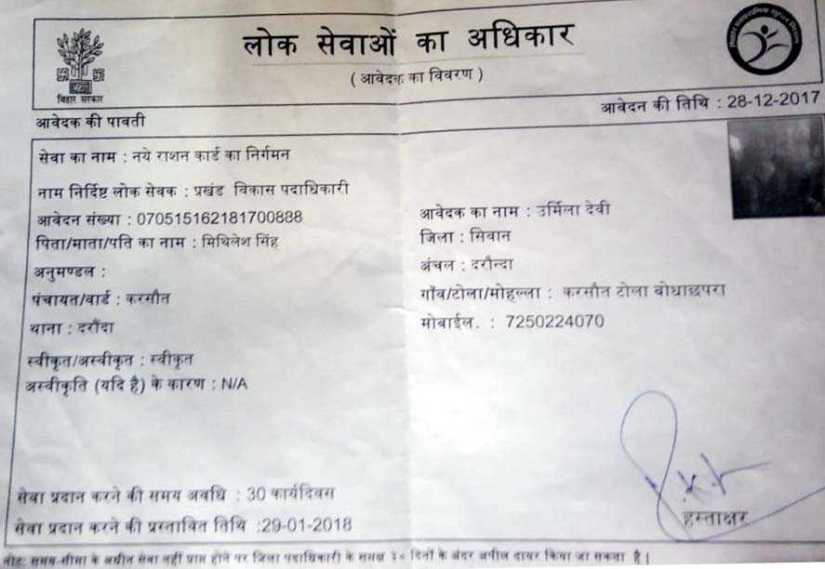 लोक सेवाओं का अधिकार
(आवेदक का विवरण)
बिहार सरकार
आवेदन की तिथि : 28-12-2017
आवेदक की पावती
सेवा का नाम : नये राशन कार्ड का निर्गमन
नाम निर्दिष्ट लोक सेवक : प्रखंड विकास पदाधिकारी
आवेदन संख्या : 070515162181700888
आवेदक का नाम : उर्मिला देवी
पिता/माता/पति का नाम : मिथिलेश सिंह
जिला : सिवान
अनुमण्डल :
अंचल : दरौन्दा
पंचायत/वार्ड : करसौत
गाँव/टोला/मोहल्ला : करसौत टोला बोधाछपरा
थाना : दरौंदा
मोबाईल. : 7250224070
स्वीकृत/अस्वीकृत : स्वीकृत
अस्वीकृति (यदि है) के कारण : N/A
सेवा प्रदान करने की समय अवधि : 30 कार्यदिवस
सेवा प्रदान करने की प्रस्तावित तिथि :29-01-2018
हस्ताक्षर
नोट: समय-सीमा के अधीन सेवा नहीं प्राप्त होने पर जिला पदाधिकारी के समक्ष ३० दिनों के अंदर अपील दायर किया जा सकता है |